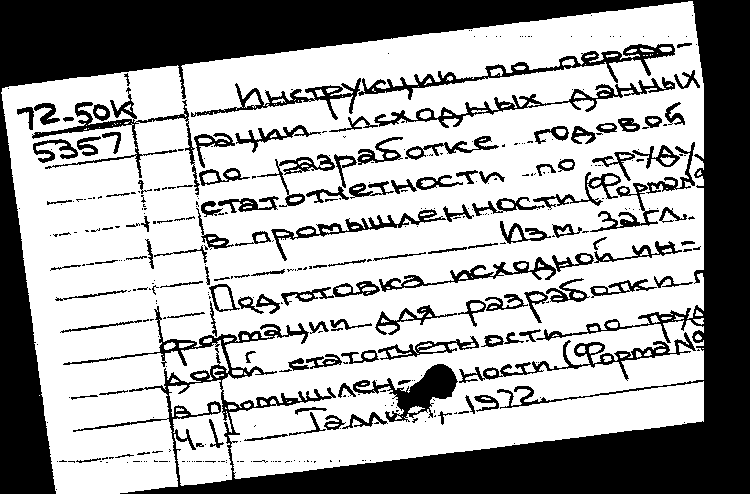 72-50к
5357
Инструкции по перфо-
рации исходных данных
по разработке годовой
статотчетности по труду
в промышленности (Форма №9
Изм. загл.
Подготовка исходной ин-
формации для разработки г
довой статотчетности по труд
в промышлен- ности. (Форма №9
Ч. 1-
, 1972.